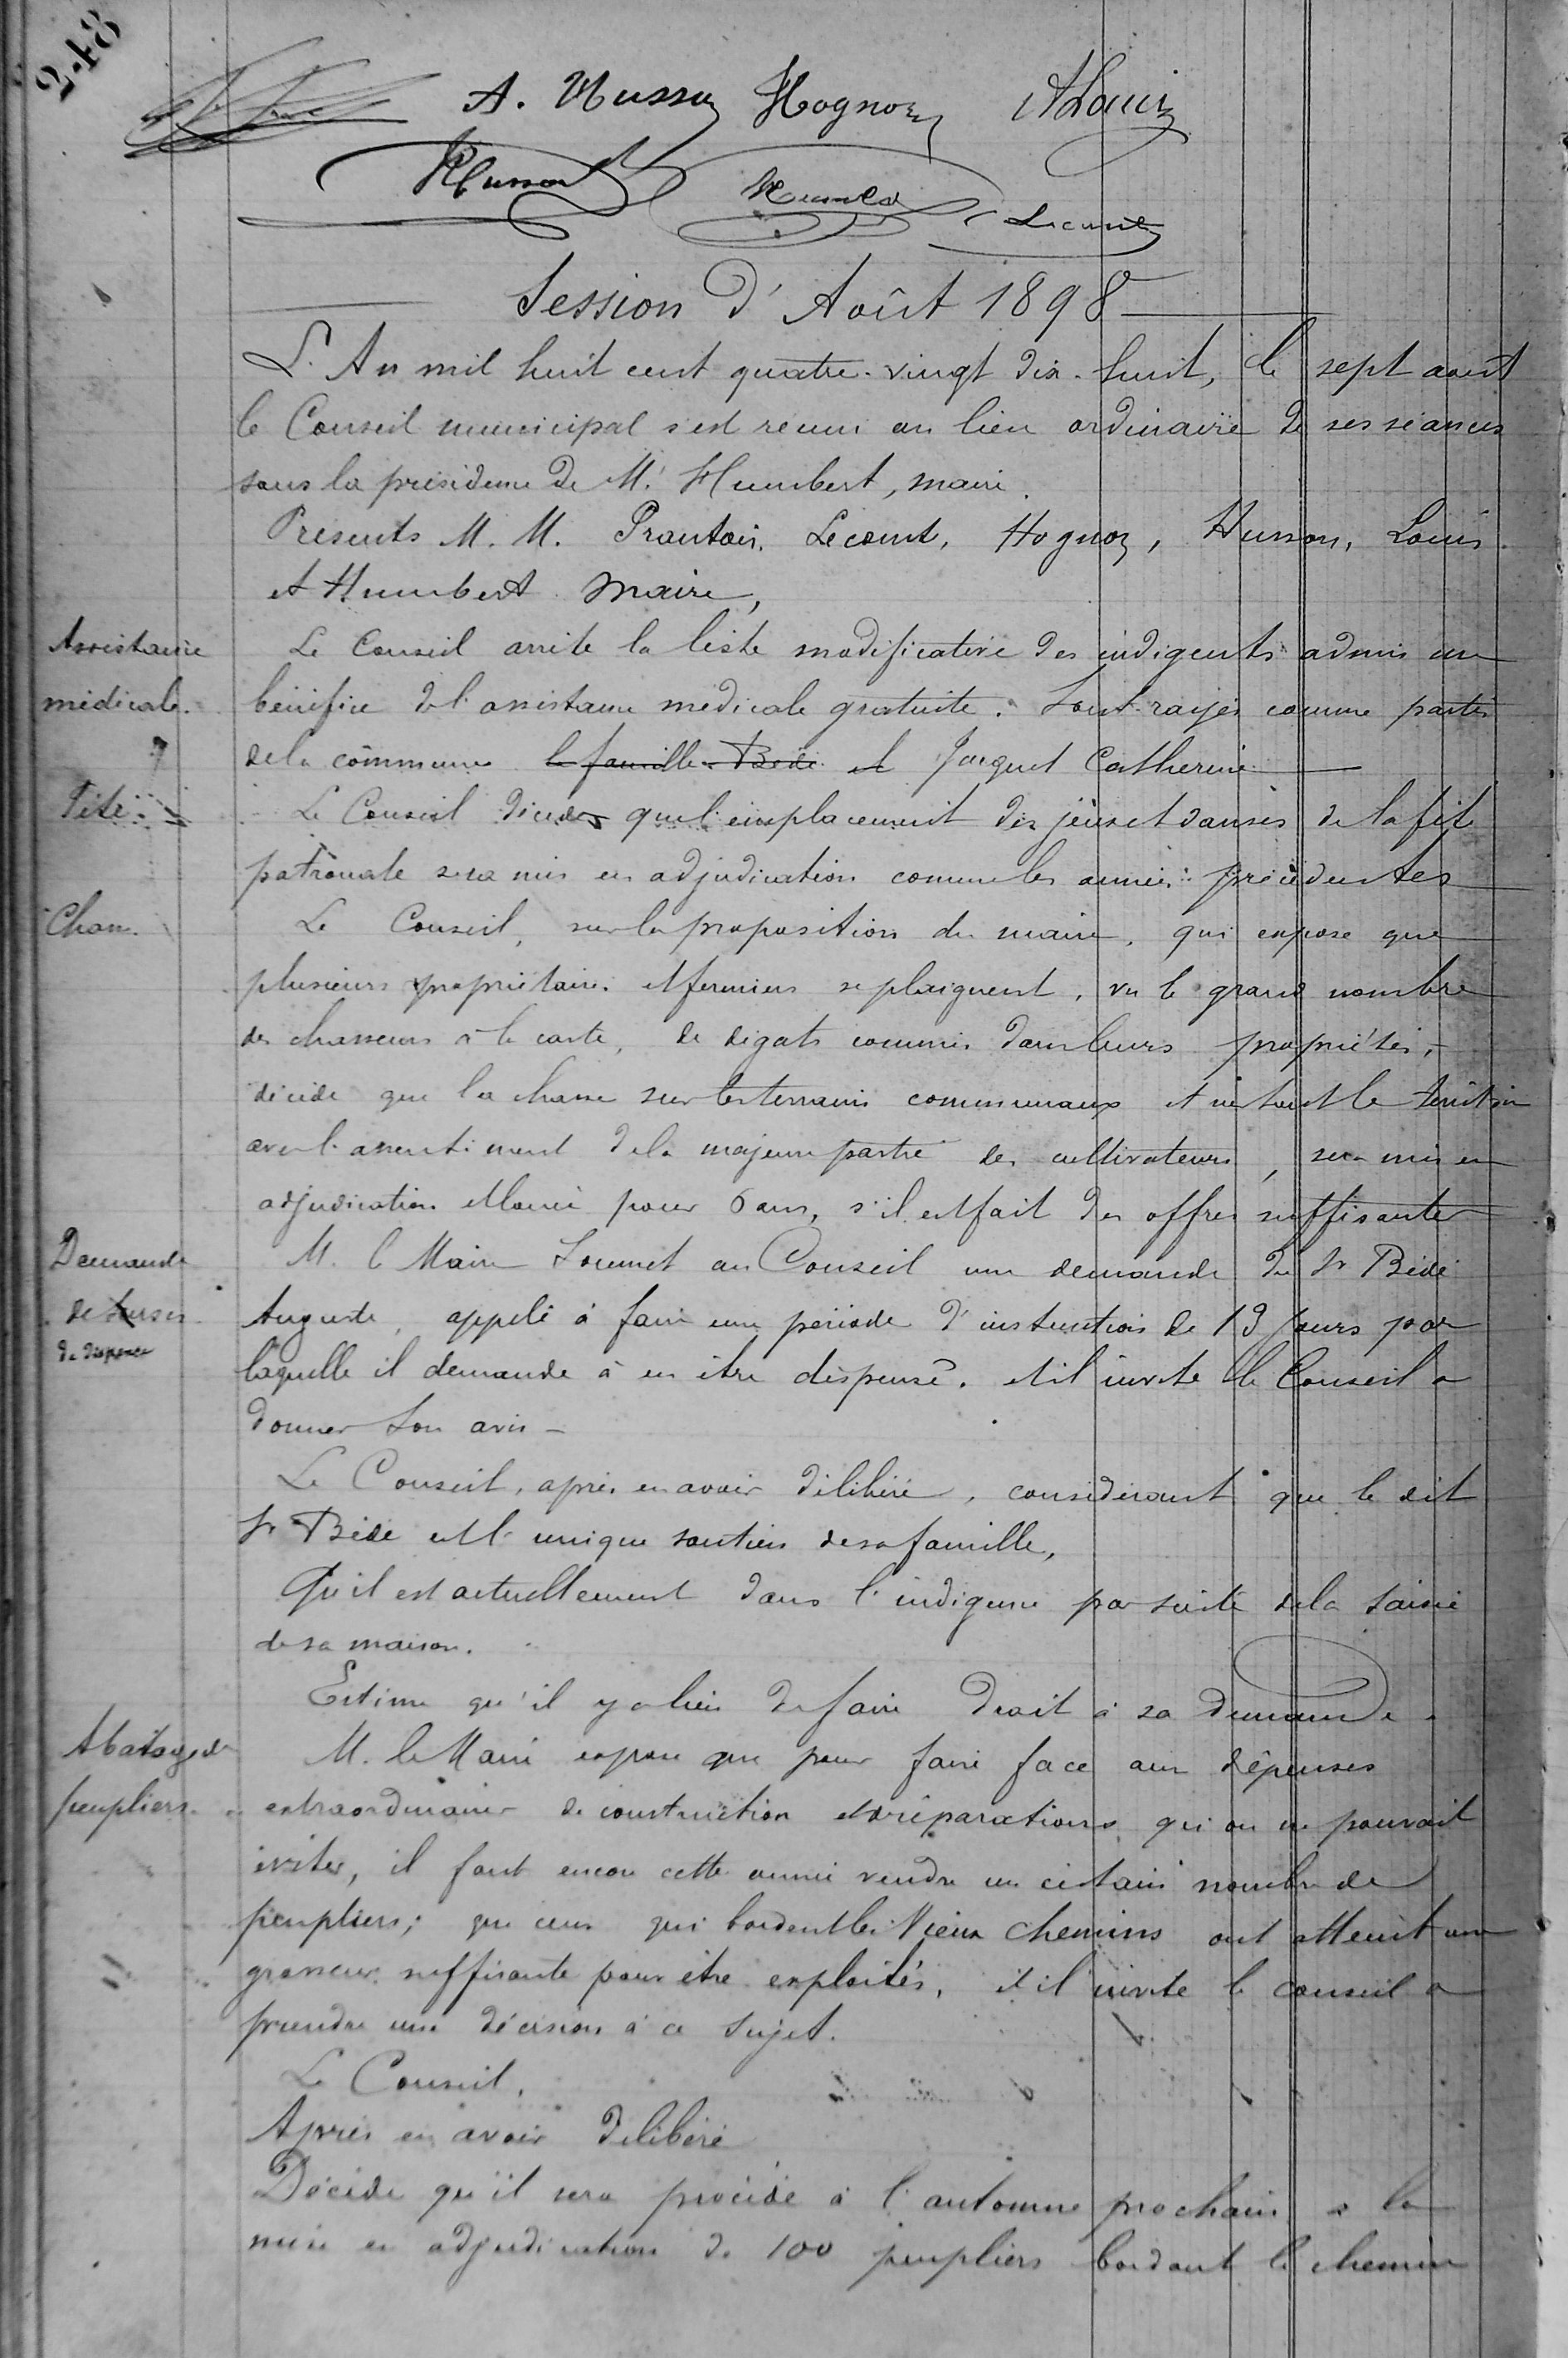 248
A. Husson Hognon A Louis
Husson Humbert Lecomte
Session d'Août 1898
L'An mil huit cent quatre-vingt dix-huit, le sept août
le Conseil municipal s'est réuni au lieu ordinaire de ses séances
sous la présidence de Mr Humbert, maire.
Présents M. M. Prantois, Lecomte, Hognon, Husson, Louis
et Humbert Maire,
Assistance
médicale.
Le Conseil arrête la liste modificative des indigents admis au
bénéfice de l'assistance médicale gratuite. Sont rayés comme partis
de la commune la famille Bédé et Jacquet Catherine
Fête
Le Conseil décide que l'emplacement des jeux et danses de la fête
patronale sera mis en adjudication comme les années précédentes
Chasse
Le Conseil, sur la proposition du maire, qui expose que
plusieurs propriétaires et fermiers se plaignent, vu le grand nombre
des chasseurs à la carte, de dégats commis dans leurs propriétés,
décide que la chasse sur les terrains communaux et sur tout le territoire
avec l'assentiment de la majeure partie des cultivateurs, sera mis en
adjudication et louée pour 6 ans, s'il est fait des offres suffisantes
Demande
de
de dispense
M. le Maire Soumet au Conseil une demande du Sr Bédé
Auguste, appelé à faire une période d'instruction de 13 jours par
laquelle il demande à en être dispensé. et il invite le Conseil a
donner son avis -
Le Conseil, après en avoir délibéré, considérant que le dit
Sr Bédé est l'unique soutien de sa famille,
Qu'il est actuellement dans l'indigence par suite de la saisie
de sa maison.
Estime qu'il y a lieu de faire droit à sa demande.
Abatage de
peupliers.
M. le Maire expose que pour faire face aux dépenses
extraordinaires de construction et réparations qu'on ne pouvait
éviter, il faut encore cette année vendre un certain nombre de
peupliers; que ceux qui bordent les Vieux chemins ont atteint une
grosseur suffisante pour être exploités, et il invite le conseil a
prendre une décision à ce sujet.
Le Conseil,
Après en avoir délibéré
Décide qu'il sera procédé à l'automne prochain a la
mise en adjudication de 100 peupliers bordant le chemin